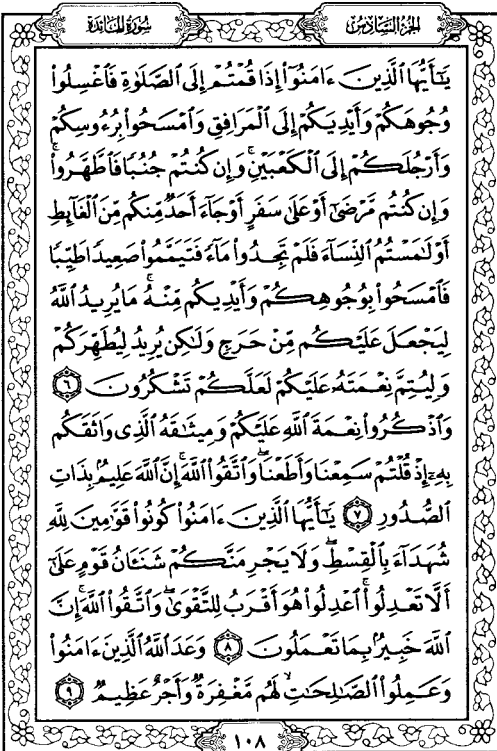 سورة المائدة
الجزء السادس
يَٰٓأَيُّهَا ٱلَّذِينَ ءَامَنُوٓا۟ إِذَا قُمْتُمْ إِلَى ٱلصَّلَوٰةِ فَٱغْسِلُوا۟
وُجُوهَكُمْ وَأَيْدِيَكُمْ إِلَى ٱلْمَرَافِقِ وَٱمْسَحُوا۟ بِرُءُوسِكُمْ
وَأَرْجُلَكُمْ إِلَى ٱلْكَعْبَيْنِ ۚ وَإِن كُنتُمْ جُنُبًا فَٱطَّهَّرُوا۟ ۚ
وَإِن كُنتُم مَّرْضَىٰٓ أَوْ عَلَىٰ سَفَرٍ أَوْ جَآءَ أَحَدٌ مِّنكُم مِّنَ ٱلْغَآئِطِ
أَوْ لَٰمَسْتُمُ ٱلنِّسَآءَ فَلَمْ تَجِدُوا۟ مَآءً فَتَيَمَّمُوا۟ صَعِيدًا طَيِّبًا
فَٱمْسَحُوا۟ بِوُجُوهِكُمْ وَأَيْدِيكُم مِّنْهُ ۚ مَا يُرِيدُ ٱللَّهُ
لِيَجْعَلَ عَلَيْكُم مِّنْ حَرَجٍ وَلَٰكِن يُرِيدُ لِيُطَهِّرَكُمْ
وَلِيُتِمَّ نِعْمَتَهُۥ عَلَيْكُمْ لَعَلَّكُمْ تَشْكُرُونَ ٦
وَٱذْكُرُوا۟ نِعْمَةَ ٱللَّهِ عَلَيْكُمْ وَمِيثَٰقَهُ ٱلَّذِى وَاثَقَكُم
بِهِۦٓ إِذْ قُلْتُمْ سَمِعْنَا وَأَطَعْنَا ۖ وَٱتَّقُوا۟ ٱللَّهَ ۚ إِنَّ ٱللَّهَ عَلِيمٌۢ بِذَاتِ
ٱلصُّدُورِ ٧ يَٰٓأَيُّهَا ٱلَّذِينَ ءَامَنُوا۟ كُونُوا۟ قَوَّٰمِينَ لِلَّهِ
شُهَدَآءَ بِٱلْقِسْطِ ۖ وَلَا يَجْرِمَنَّكُمْ شَنَـَٔانُ قَوْمٍ عَلَىٰٓ
أَلَّا تَعْدِلُوا۟ ۚ ٱعْدِلُوا۟ هُوَ أَقْرَبُ لِلتَّقْوَىٰ ۖ وَٱتَّقُوا۟ ٱللَّهَ ۚ إِنَّ
ٱللَّهَ خَبِيرٌۢ بِمَا تَعْمَلُونَ ٨ وَعَدَ ٱللَّهُ ٱلَّذِينَ ءَامَنُوا۟
وَعَمِلُوا۟ ٱلصَّٰلِحَٰتِ ۙ لَهُم مَّغْفِرَةٌ وَأَجْرٌ عَظِيمٌ ٩
١٠٨